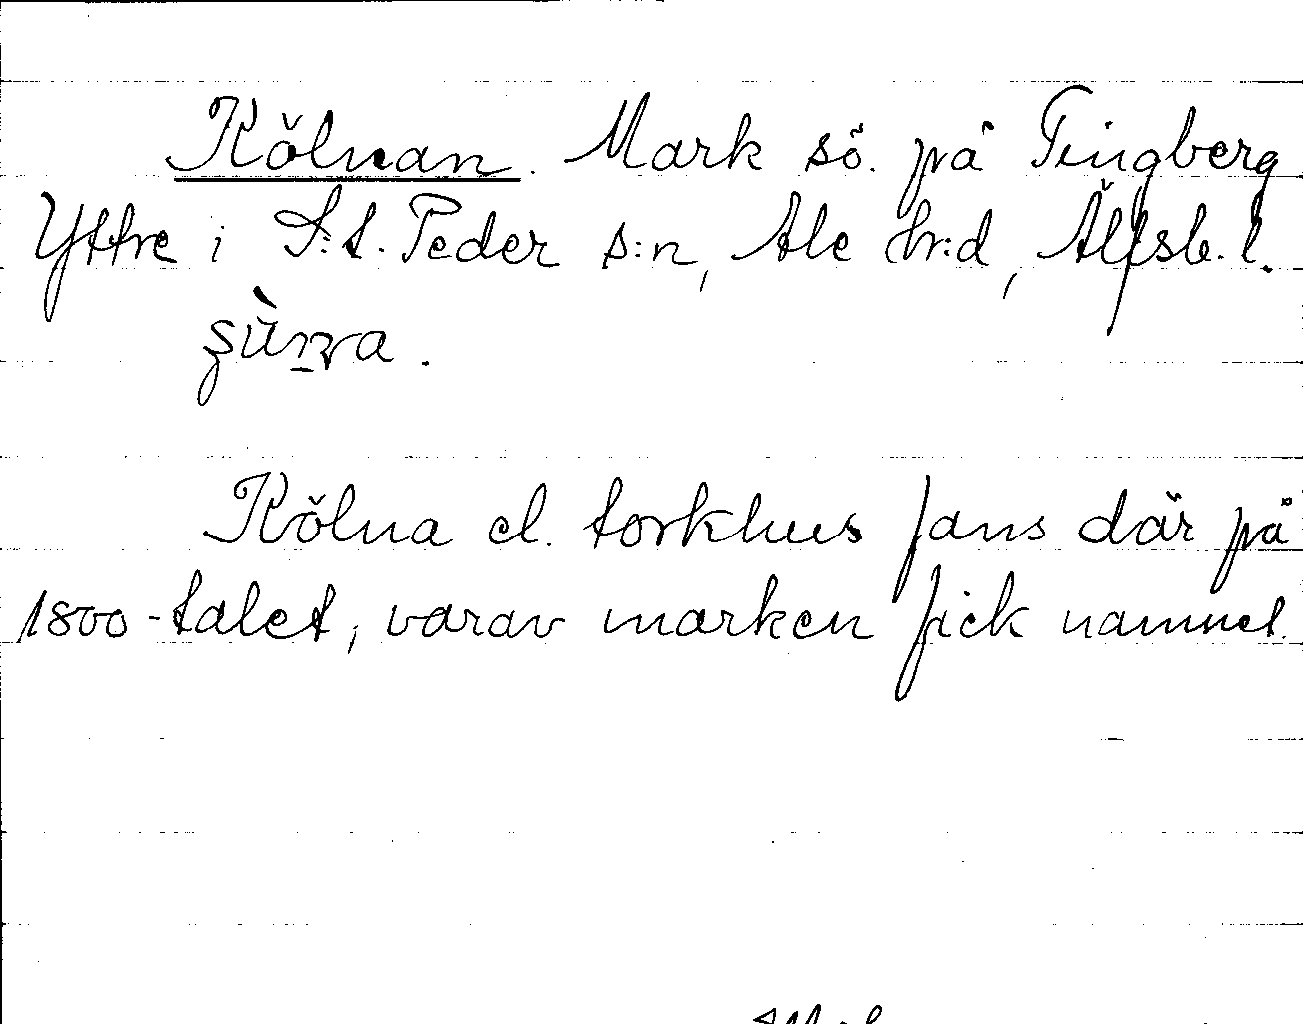 Kölnan. Mark sö. på Tingberg
Yttre i S:t. Peder s:n, Ale hr:d, Älfsb. l.
Kölna el. torkhus fans där på
1800-talet, varav marken fick namnet.